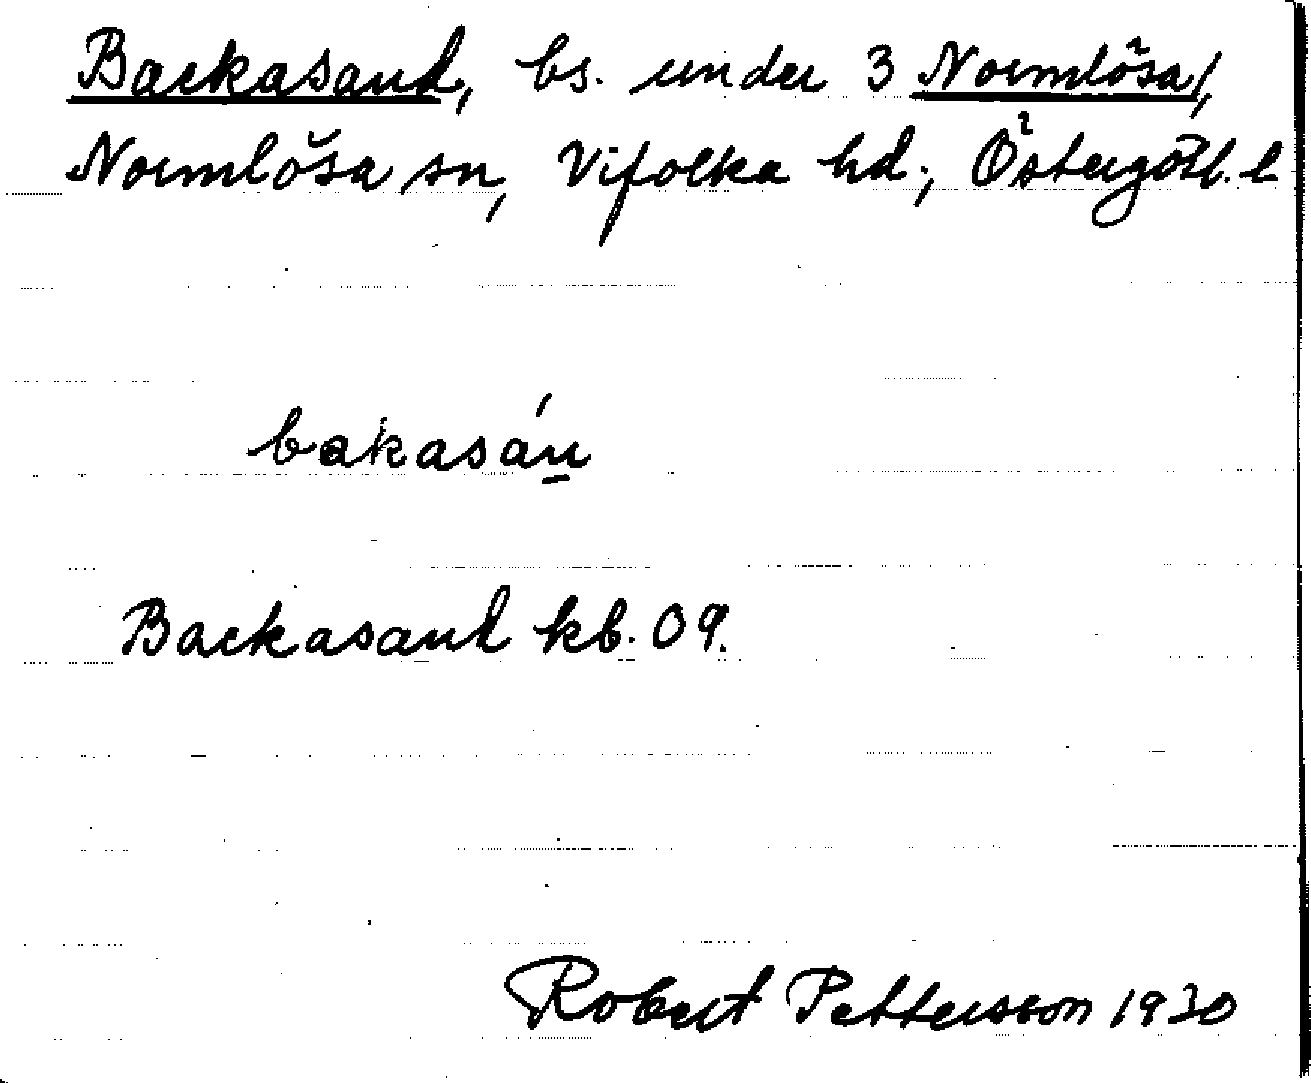 Backasand, bs. under 3 Normlösa,
Normlösa sn, Vifolka hd., Östergötl. l
bakasán
Backasand kb. 09.
Robert Pettersson 1930